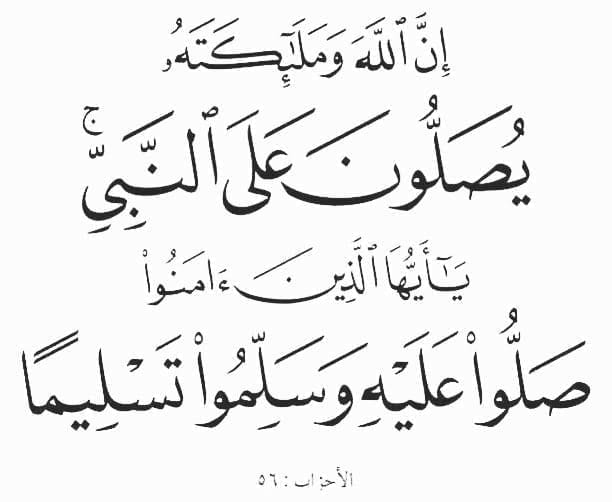 إِنَّ ٱللَّهَ وَمَلَـٰٓئِكَتَهُۥ
يُصَلُّونَ عَلَى ٱلنَّبِىِّ ۚ
يَـٰٓأَيُّهَا ٱلَّذِينَ ءَامَنُوا۟
صَلُّوا۟ عَلَيْهِ وَسَلِّمُوا۟ تَسْلِيمًا
الأحزاب : ٥٦